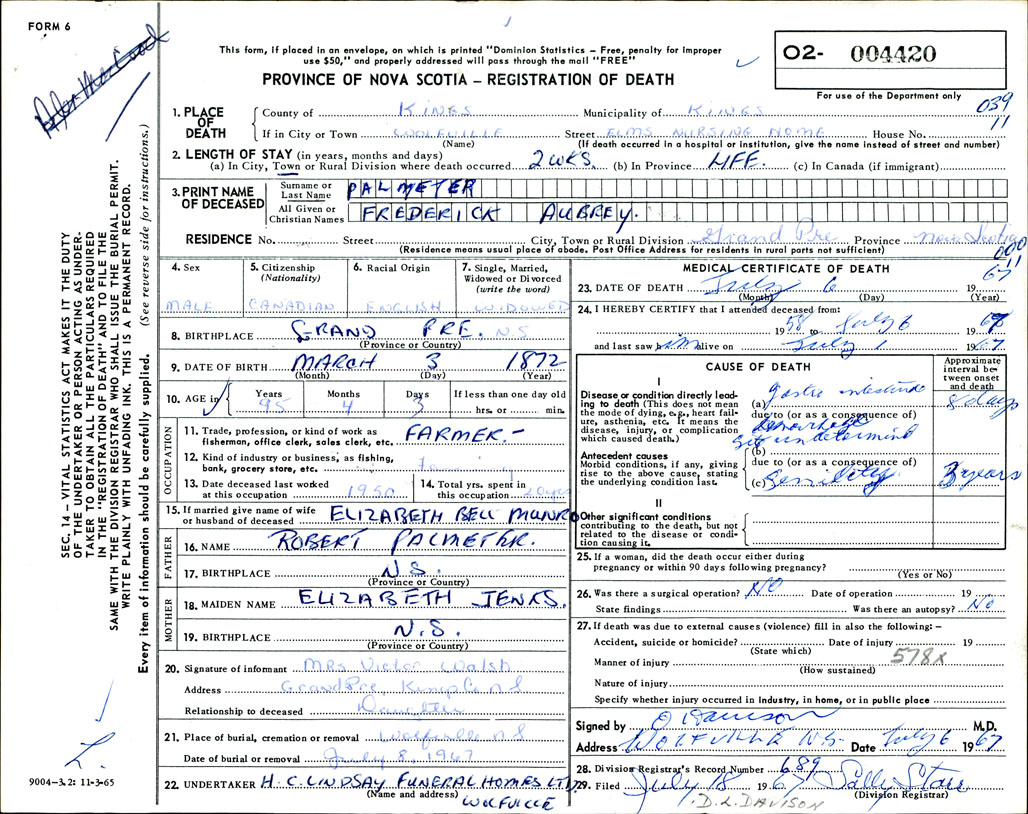 FORM 6
This form, if placed in an envelope, on which is printed "Dominion Statistics – Free, penalty for improper
use $50," and properly addressed will pass through the mail "FREE"
PROVINCE OF NOVA SCOTIA – REGISTRATION OF DEATH
O2- 004420
For use of the Department only
039
11
1. PLACE OF DEATH
County of KINGS Municipality of KINGS
If in City or Town WOLFVILLE Street ELMS NURSING HOME House No.
(Name) (If death occurred in a hospital or institution, give the name instead of street and number)
2. LENGTH OF STAY (in years, months and days)
(a) In City, Town or Rural Division where death occurred 2 WKS. (b) In Province LIFE. (c) In Canada (if immigrant)
3. PRINT NAME OF DECEASED
Surname or Last Name PALMETER
All Given or Christian Names FREDERICK AUBREY.
RESIDENCE No. Street City, Town or Rural Division Grand Pre Province Nova Scotia
(Residence means usual place of abode. Post Office Address for residents in rural parts not sufficient)
000
11
4. Sex MALE
5. Citizenship (Nationality) CANADIAN
6. Racial Origin ENGLISH
7. Single, Married, Widowed or Divorced (write the word) WIDOWED
8. BIRTHPLACE GRAND PRE. N.S
(Province or Country)
9. DATE OF BIRTH MARCH 3 1872
(Month) (Day) (Year)
10. AGE in Years 95 Months 4 Days 3 If less than one day old hrs. or min.
OCCUPATION
11. Trade, profession, or kind of work as fisherman, office clerk, sales clerk, etc. FARMER.-
12. Kind of industry or business, as fishing, bank, grocery store, etc.
13. Date deceased last worked at this occupation 1950
14. Total yrs. spent in this occupation
15. If married give name of wife or husband of deceased ELIZABETH BELL MUNRO
FATHER
16. NAME ROBERT PALMETER.
17. BIRTHPLACE N.S.
(Province or Country)
MOTHER
18. MAIDEN NAME ELIZABETH JENKS.
19. BIRTHPLACE N.S.
(Province or Country)
20. Signature of informant Mrs Victor Walsh
Address Grand Pre, Kings Co. N S
Relationship to deceased Daughter
21. Place of burial, cremation or removal Wolfville N S
Date of burial or removal July 8, 1967
22. UNDERTAKER H. C. LINDSAY FUNERAL HOMES LTD.
(Name and address) WOLFVILLE
MEDICAL CERTIFICATE OF DEATH
23. DATE OF DEATH July 6 1967
(Month) (Day) (Year)
24. I HEREBY CERTIFY that I attended deceased from:
1958 to July 6 1967
and last saw him alive on July 1 1967
CAUSE OF DEATH
Approximate interval between onset and death
I
Disease or condition directly leading to death (This does not mean the mode of dying, e.g., heart failure, asthenia, etc. It means the disease, injury, or complication which caused death.)
(a) gastro intestinal 8 days
due to (or as a consequence of)
hemorhage
site undetermind
(b)
Antecedent causes
Morbid conditions, if any, giving rise to the above cause, stating the underlying condition last.
due to (or as a consequence of)
(c) Senility 3 years
II
Other significant conditions
contributing to the death, but not related to the disease or condition causing it.
25. If a woman, did the death occur either during
pregnancy or within 90 days following pregnancy?
(Yes or No)
26. Was there a surgical operation? NO Date of operation 19
State findings Was there an autopsy? No
27. If death was due to external causes (violence) fill in also the following:–
Accident, suicide or homicide? Date of injury 19
(State which)
578x
Manner of injury
(How sustained)
Nature of injury
Specify whether injury occurred in industry, in home, or in public place
Signed by D Davison M.D.
Address WOLFVILLE N.S. Date July 6 1967
28. Division Registrar's Record Number 689
29. Filed July 8 1967 Sally Starr
(Division Registrar)
D. L. DAVISON
SEC. 14 – VITAL STATISTICS ACT MAKES IT THE DUTY
OF THE UNDERTAKER OR PERSON ACTING AS UNDER-
TAKER TO OBTAIN ALL THE PARTICULARS REQUIRED
IN THE "REGISTRATION OF DEATH" AND TO FILE THE
SAME WITH THE DIVISION REGISTRAR WHO SHALL ISSUE THE BURIAL PERMIT.
WRITE PLAINLY WITH UNFADING INK. THIS IS A PERMANENT RECORD.
Every item of information should be carefully supplied. (See reverse side for instructions.)
L.
9004-3.2: 11-3-65